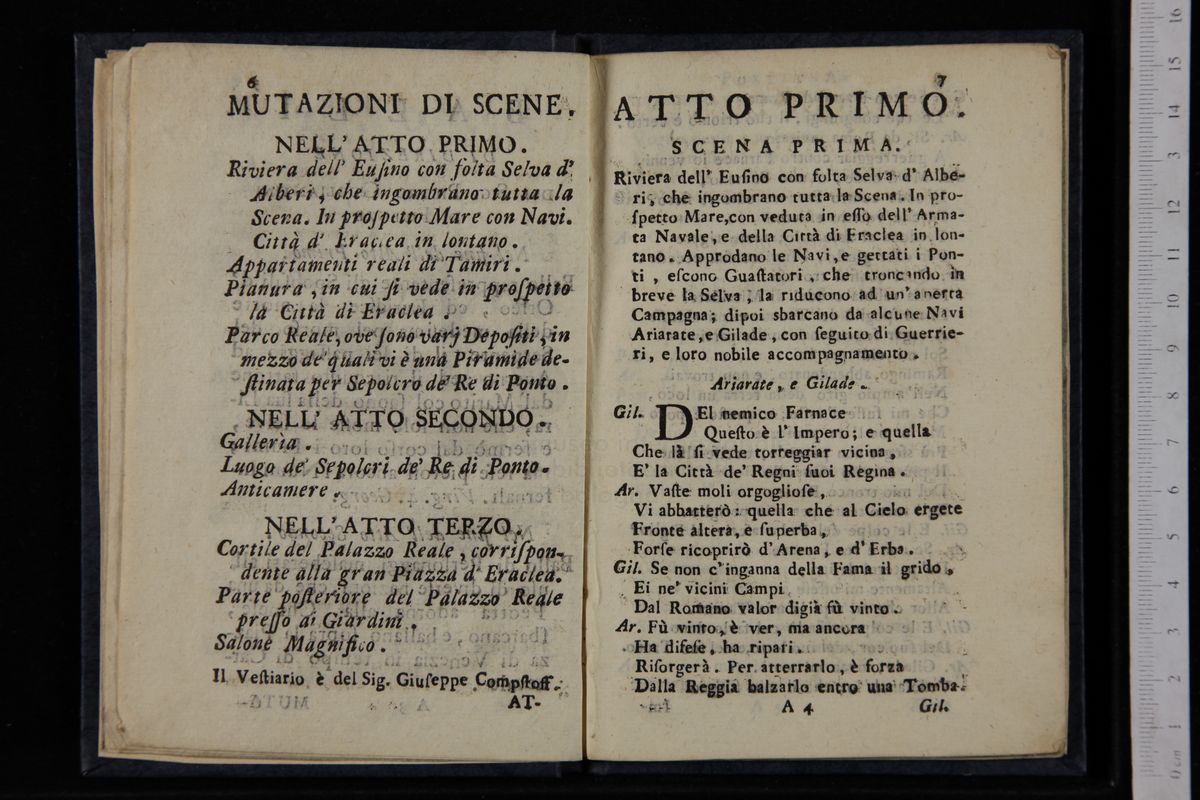 6
MUTAZIONI DI SCENE.
NELL' ATTO PRIMO.
Riviera dell' Euſino con folta Selva d'
Alberi, che ingombrano tutta la
Scena. In proſpetto Mare con Navi.
Città d' Eraclea in lontano.
Appartamenti reali di Tamiri.
Pianura, in cui ſi vede in proſpetto
la Città di Eraclea.
Parco Reale, ove ſono varj Depoſiti, in
mezzo de' quali vi è una Piramide de-
ſtinata per Sepolcro de' Re di Ponto.
NELL' ATTO SECONDO.
Galleria.
Luogo de' Sepolcri de' Re di Ponto.
Anticamere.
NELL' ATTO TERZO.
Cortile del Palazzo Reale, corriſpon-
dente alla gran Piazza d' Eraclea.
Parte poſteriore del Palazzo Reale
preſſo ai Giardini.
Salone Magnifico.
Il Veſtiario è del Sig. Giuſeppe Compſtoff.
AT-
7
ATTO PRIMO.
SCENA PRIMA.
Riviera dell' Euſino con folta Selva d' Albe-
ri, che ingombrano tutta la Scena. In pro-
ſpetto Mare, con veduta in eſſo dell' Arma-
ta Navale, e della Città di Eraclea in lon-
tano. Approdano le Navi, e gettati i Pon-
ti, eſcono Guaſtatori, che troncando in
breve la Selva, la riducono ad un' aperta
Campagna; dipoi sbarcano da alcune Navi
Ariarate, e Gilade, con ſeguito di Guerrie-
ri, e loro nobile accompagnamento.
Ariarate, e Gilade.
Gil. DEl nemico Farnace
Queſto è l' Impero; e quella
Che là ſi vede torreggiar vicina,
E' la Città de' Regni ſuoi Regina.
Ar. Vaſte moli orgoglioſe,
Vi abbatterò: quella che al Cielo ergete
Fronte altera, e ſuperba,
Forſe ricoprirò d' Arena, e d' Erba.
Gil. Se non c' inganna della Fama il grido,
Ei ne' vicini Campi
Dal Romano valor digià fù vinto.
Ar. Fù vinto, è ver, ma ancora
Ha difeſe, ha ripari.
Riſorgerà. Per atterrarlo, è forza
Dalla Reggia balzarlo entro una Tomba.
A 4
Gil.